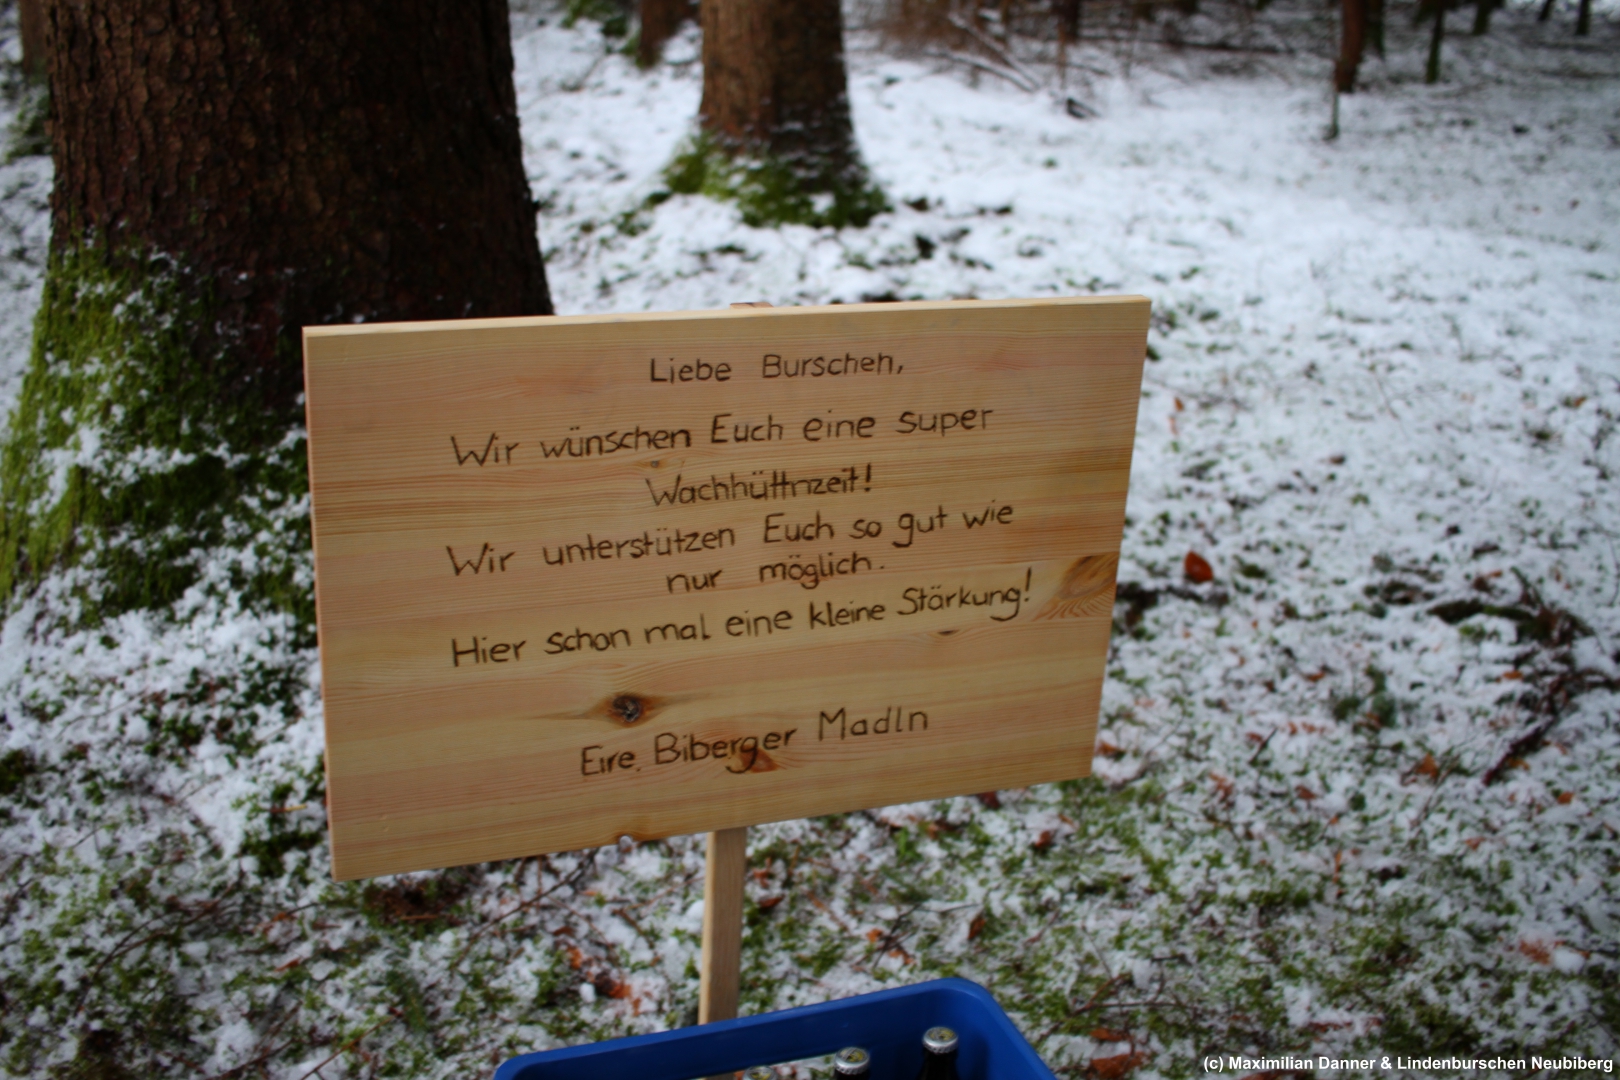 Liebe Burschen,
Wir wünschen Euch eine super
Wachhüttnzeit!
Wir unterstützen Euch so gut wie
nur möglich.
Hier schon mal eine kleine Stärkung!
Eire Biberger Madln
(c) Maximilian Danner & Lindenburschen Neubiberg